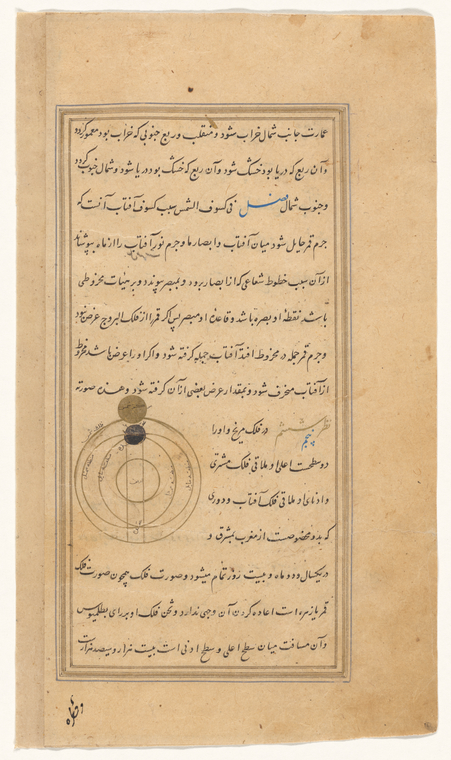 عمارت جانب شمال خراب شود و منقلب و ربع جنوبی که خراب بود معمور گردد
و آن ربع که دریا بود خشک شود و آن ربع که خشک بود دریا شود و شمال جنوب گردد
و جنوب شمال فصل فی کسوف الشمس سبب کسوف آفتاب آنست که
جرم قمر حایل شود میان آفتاب و ابصار ما و جرم نور آفتاب را از ما بپوشاند
از آن سبب خطوط شعاعی که از ابصار برود و بمبصر پیوندد بر هیأت مخروطی
باشد نقطه او بصره باشد و قاعده او مبصر پس اگر قمر را از فلک البروج عرض نبود
و جرم قمر جمله در مخروط افتد آفتاب جمله گرفته شود و اگر او را عرض باشد مخروط
از آفتاب منحرف شود و بمقدار عرض بعضی از آن گرفته شود و هذه صورته
نظر ششم پنجم در فلک مریخ و او را
دو سطحت اعلی او ملاقی فلک مشتری
و ادنای او ملاقی فلک آفتاب و دوری
که بدو مخصوصست از مغرب بمشرق و
در یکسال و ده ماه و بیست روز تمام میشود و صورت فلک چون صورت فلک
قمر اعاده کردن آن وجهی ندارد و ثخن فلک او برای بطلمیوس
و آن مسافت میان سطح اعلی و سطح ادنی است بیست هزار و سیصد هزار